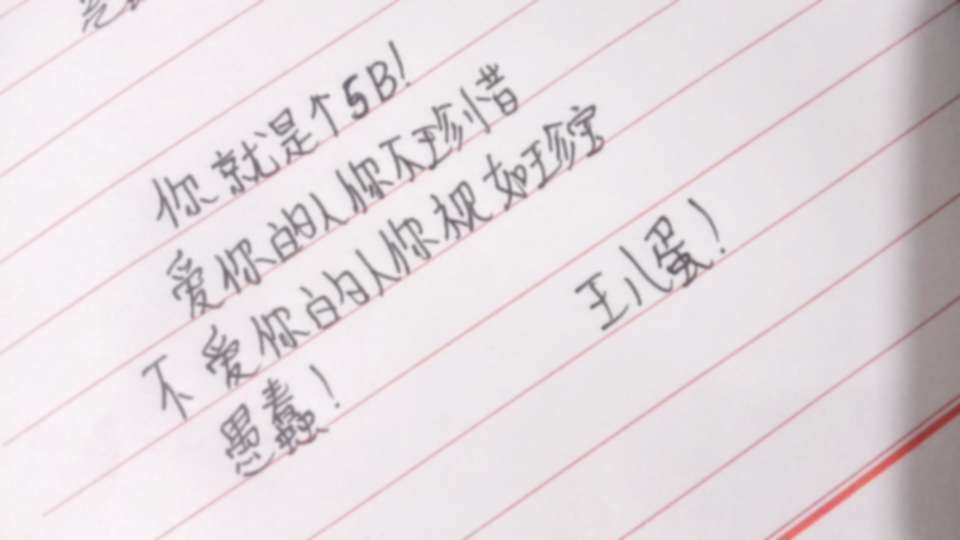 你就是个SB!
爱你的人你不珍惜
不爱你的人你视如珍宝
愚蠢!
王八蛋!